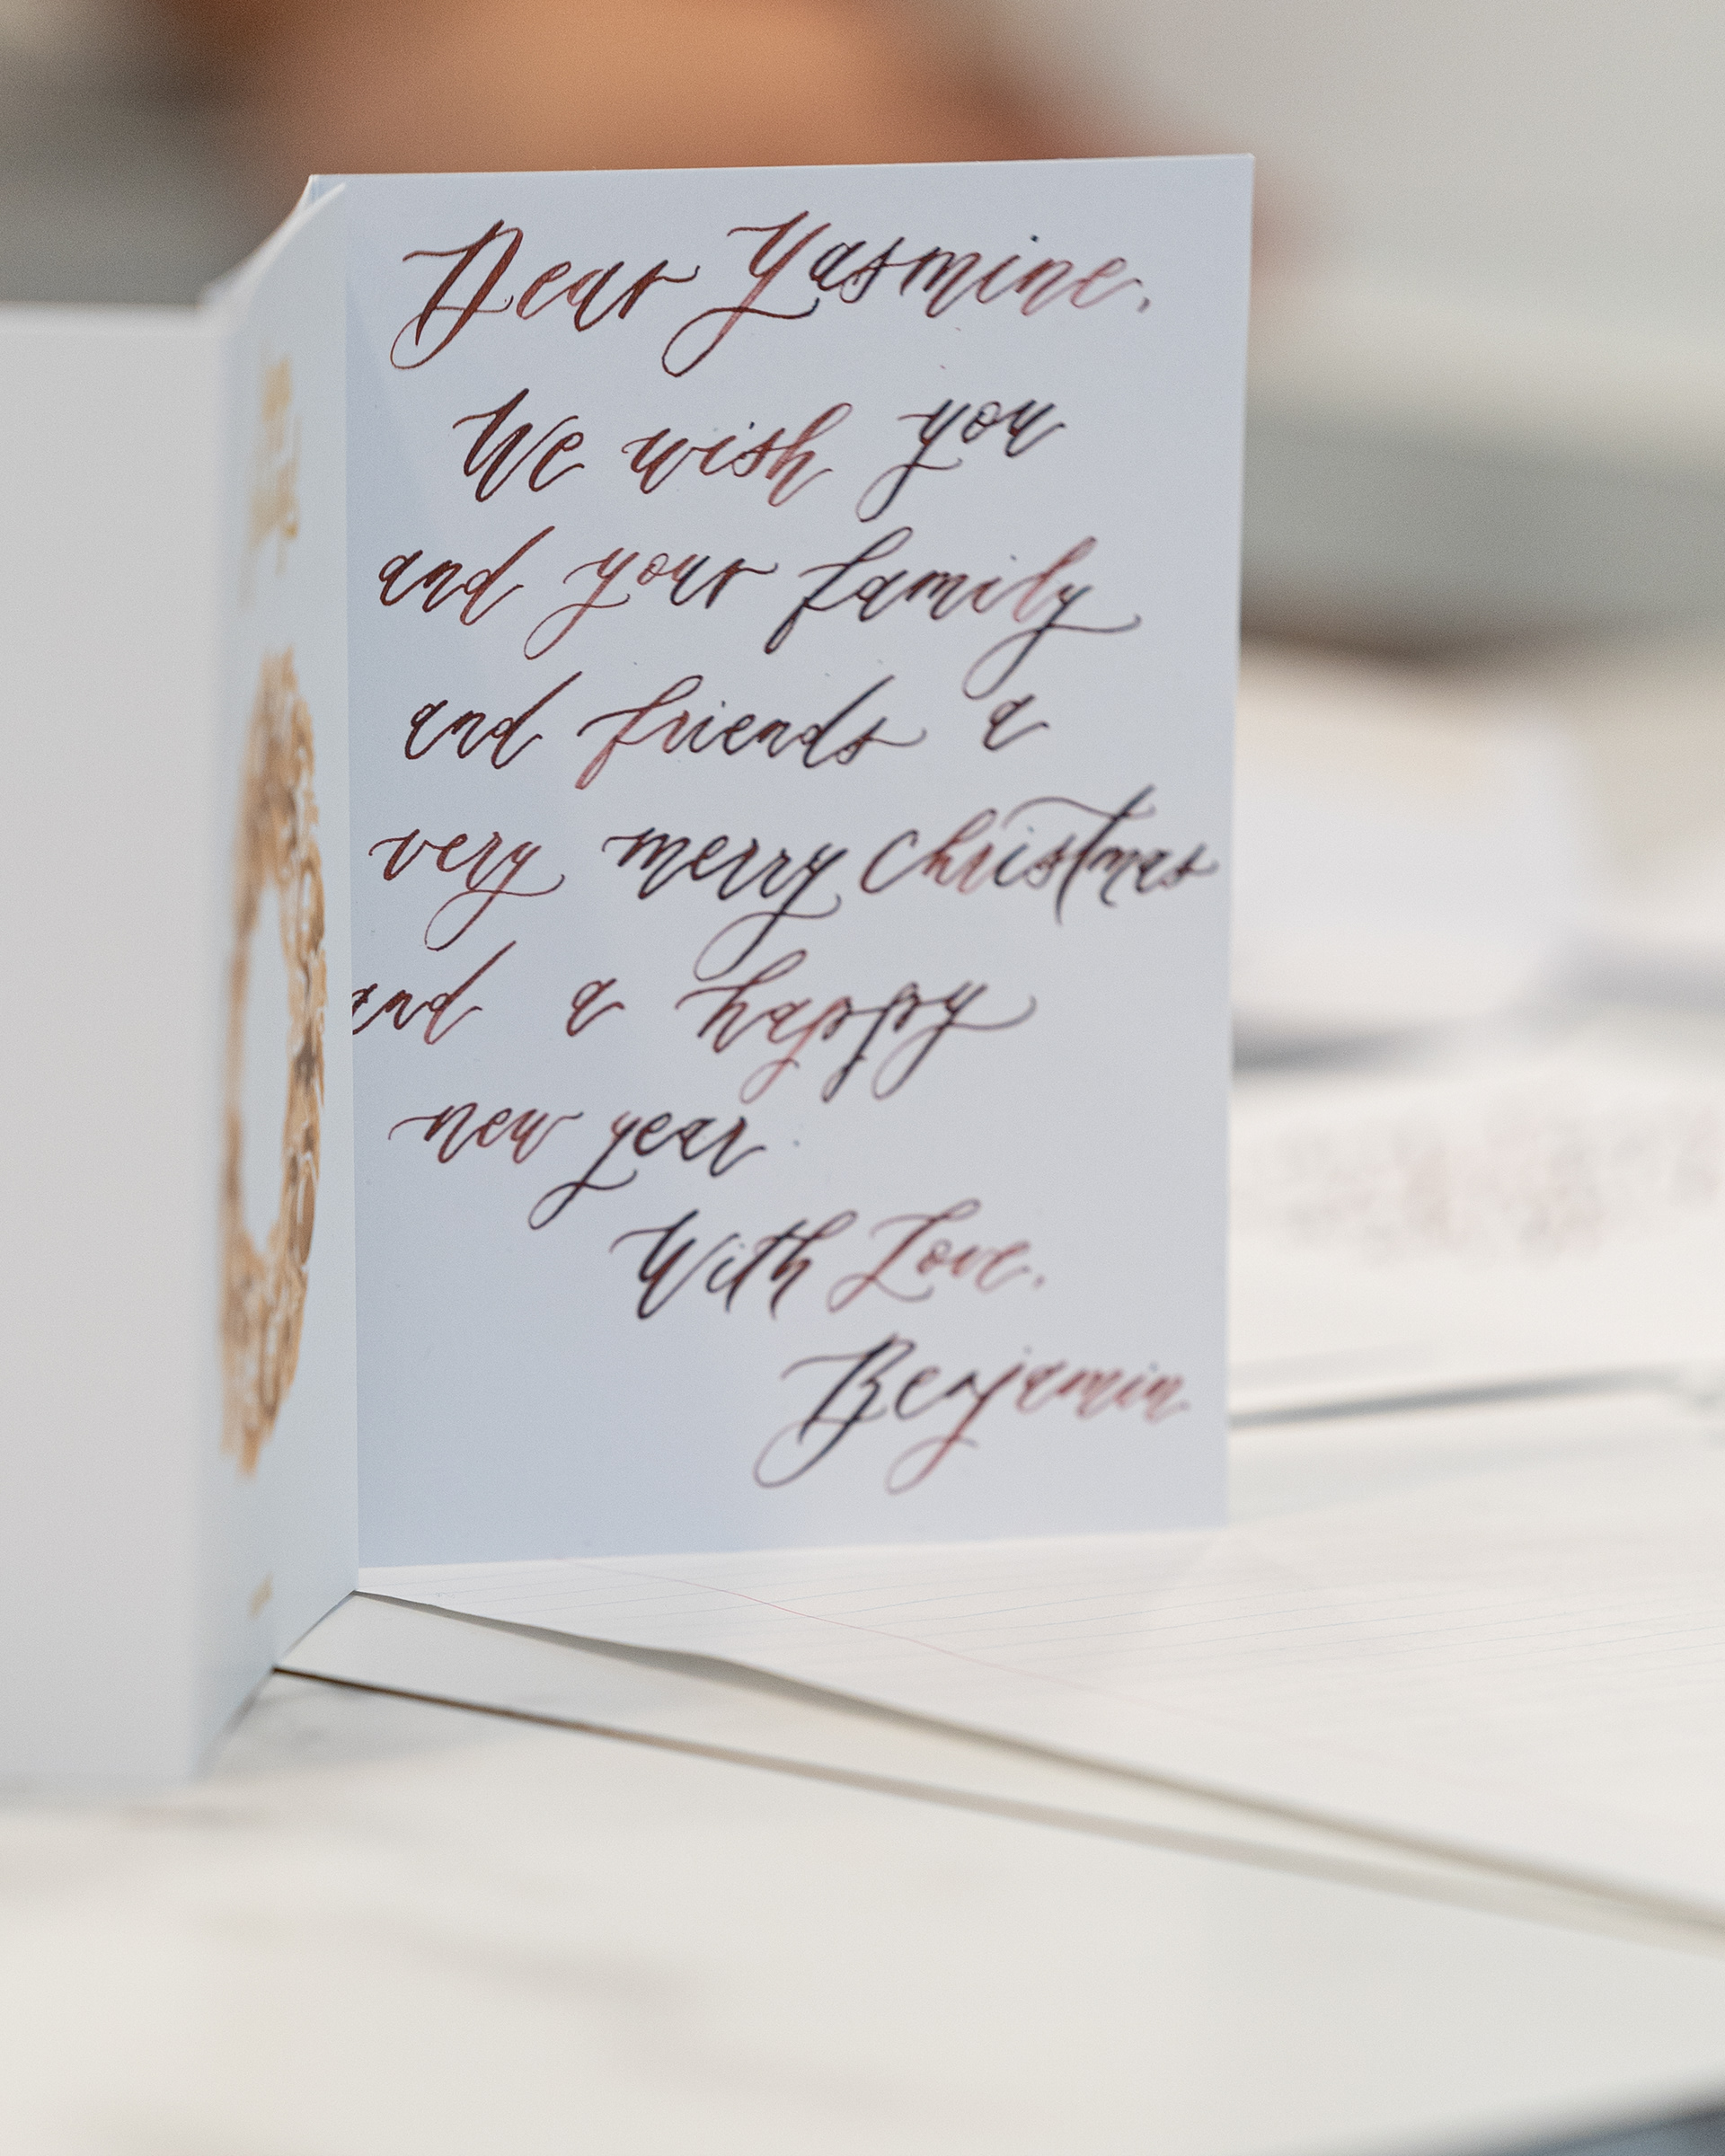 Dear Yasmine,
We wish you
and your family
and friends a
very merry Christmas
and a happy
new year
With Love,
Benjamin